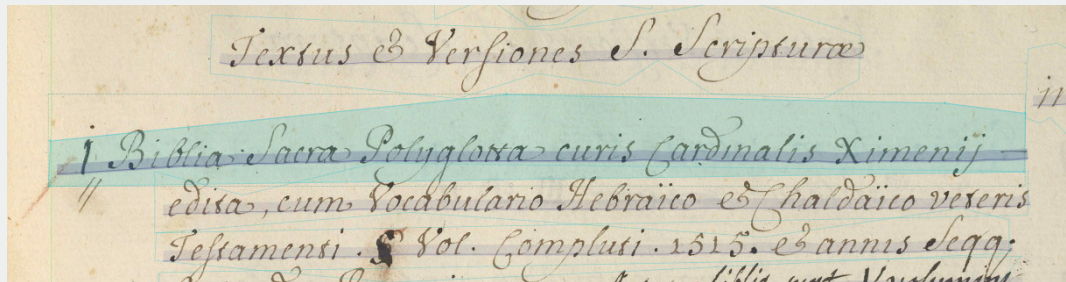 Textus & Versiones S. Scripturæ
1 Biblia Sacra Polyglotta curis Cardinalis Ximenij
edita, cum Vocabulario Hebraïco & Chaldaïco veteris
Testamenti. Vol. Compluti. 1515. & annis Seqq;